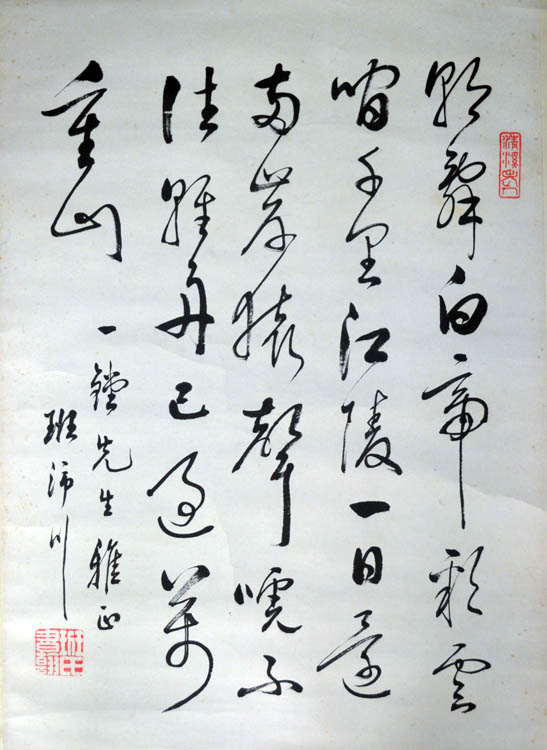 朝辭白帝彩雲
間千里江陵一日還
兩岸猿聲嗁不
住輕舟已過萬
重山
一鏜先生雅正
班沛川